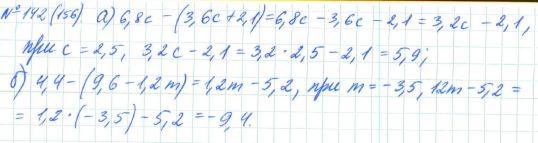 № 142 (156) а) 6,8c - (3,6c + 2,1) = 6,8c - 3,6c - 2,1 = 3,2c - 2,1,
при c = 2,5, 3,2c - 2,1 = 3,2 · 2,5 - 2,1 = 5,9;
б) 4,4 - (9,6 - 1,2m) = 1,2m - 5,2, при m = -3,5, 12m - 5,2 =
= 1,2 · (-3,5) - 5,2 = -9,4.